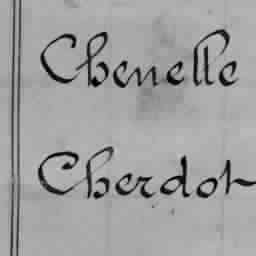 Chenelle
Cherdot